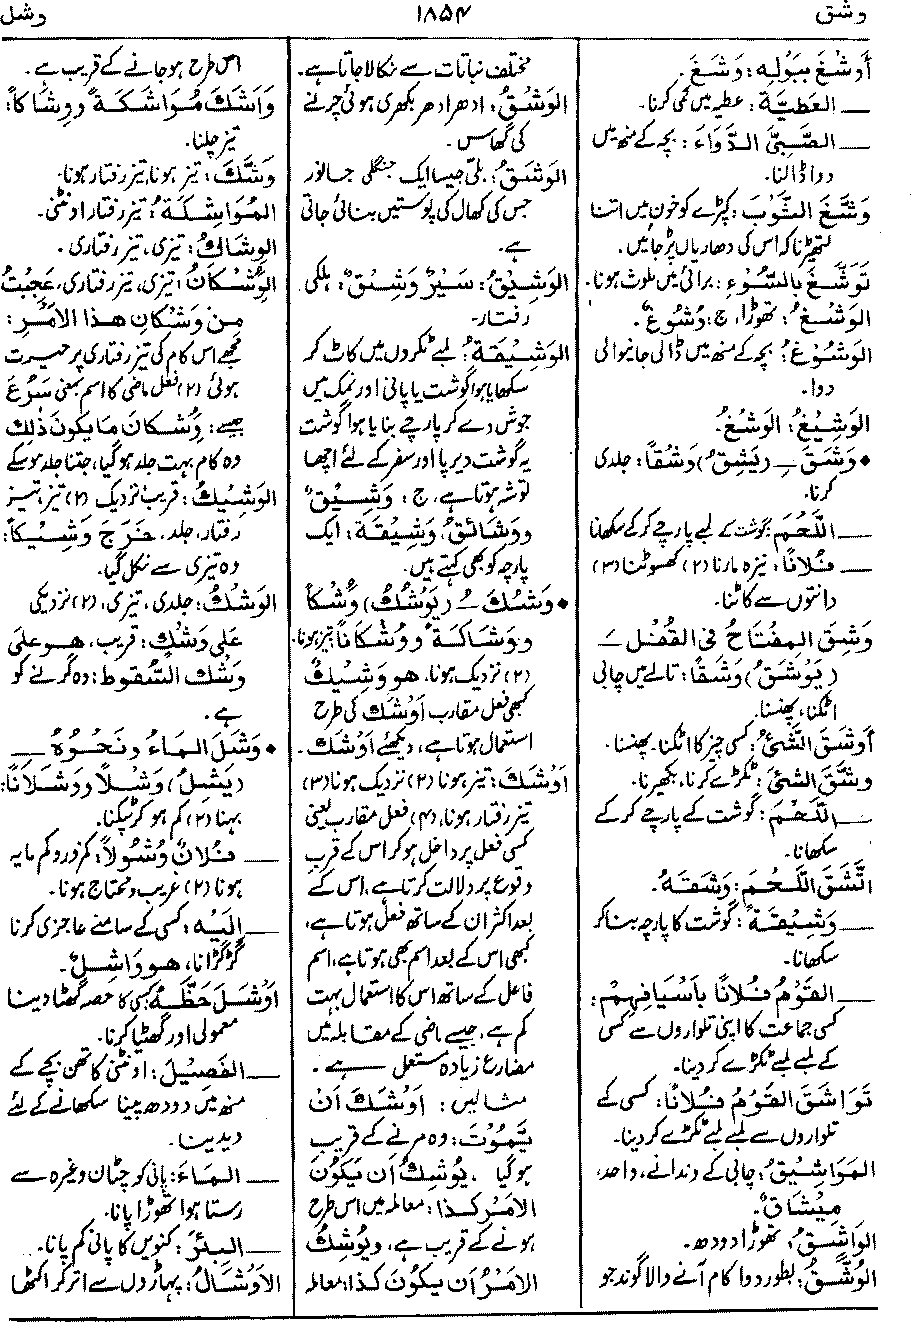 وشق
۱۸۵۴
وشل
أَوْشَغَ بِبَوْلِه: وَشَغَ۔
ــــ العَطِيَّةَ: عطیہ میں کمی کرنا۔
ــــ الصَّبِيَّ الدَّوَاءَ: بچہ کے منھ میں
دوا ڈالنا۔
وَشَّغَ الثَّوْبَ: کپڑے کو خون میں اتنا
لتھیڑنا کہ اس کی دھاریاں پڑ جائیں۔
تَوَشَّغَ بِالسُّوْءِ: برائی میں ملوث ہونا۔
الوَشْغُ: تھوڑا، ج: وُشُوغٌ۔
الوَشُوْغُ: بچہ کے منھ میں ڈالی جانیوالی
دوا۔
الوَشِيْغُ: الوَشْغُ۔
• وَشَقَ ــِـ (يَشِقُ) وَشْقًا: جلدی
کرنا۔
ــــ اللَّحْمَ: گوشت کے لمبے پارچے کر کے سکھانا
ــــ فُلَانًا: نیزہ مارنا (۲) کھسوٹنا (۳)
دانتوں سے کاٹنا۔
وَشِقَ المِفْتَاحُ فِي القُفْلِ ــَـ
(يَوْشَقُ) وَشَقًا: تالے میں چابی
اٹکنا، پھنسنا۔
أَوْشَقَ الشَّيْءُ: کسی چیز کا اٹکنا۔ پھنسنا۔
وَشَّقَ الشَّيْءَ: ٹکڑے کرنا، بکھیرنا۔
ــــ اللَّحْمَ: گوشت کے پارچے کر کے
سکھانا۔
اتَّشَقَ اللَّحْمَ: وَشَقَهُ۔
ــــ وَشِيْقَةً: گوشت کا پارچہ بنا کر
سکھانا۔
ــــ القَوْمُ فُلَانًا بِأَسْيَافِهِمْ:
کسی جماعت کا اپنی تلواروں سے کسی
کے لمبے لمبے ٹکڑے کر دینا۔
تَوَاشَقَ القَوْمُ فُلَانًا: کسی کے
تلواروں سے لمبے لمبے ٹکڑے کر دینا۔
المَوَاشِيْقُ: چابی کے دندانے، واحد،
مِيْشَاقٌ۔
الوَاشِقُ: تھوڑا دودھ۔
الوُشَّقُ: بطور دوا کام آنے والا گوند جو
مختلف نباتات سے نکالا جاتا ہے۔
الوَشْقُ: ادھر ادھر بکھری ہوئی چرنے
کی گھاس۔
الوَشَقُ: بلّی جیسا ایک جنگلی جانور
جس کی کھال کی پوستیں بنائی جاتی
ہے۔
الوَشِيْقُ: سَيْرٌ وَشِيْقٌ: ہلکی
رفتار۔
الوَشِيْقَةُ: لمبے ٹکڑوں میں کاٹ کر
سکھایا ہوا گوشت یا پانی اور نمک میں
جوش دے کر پارچے بنایا ہوا گوشت
یہ گوشت دیرپا اور سفر کے لئے اچھا
توشہ ہوتا ہے، ج: وَشِيْقٌ
ووَشَائِقُ، وَشِيْقَة: ایک
پارچہ کو بھی کہتے ہیں۔
• وَشُكَ ــُـ (يَوْشُكُ) وَشْكًا
ووَشَاكَةً ووُشْكَانًا: تیز ہونا۔
(۲) نزدیک ہونا، هو وَشِيْكٌ
کبھی فعل مقارب أَوْشَكَ کی طرح
استعمال ہوتا ہے، دیکھئے أَوْشَكَ۔
أَوْشَكَ: تیز ہونا (۲) نزدیک ہونا (۳)
تیز رفتار ہونا، (۴) فعل مقارب یعنی
کسی فعل پر داخل ہو کر اس کے قرب
وقوع پر دلالت کرتا ہے، اس کے
بعد اکثر ان کے ساتھ فعل ہوتا ہے،
کبھی اس کے بعد اسم بھی ہوتا ہے، اسم
فاعل کے ساتھ اس کا استعمال بہت
کم ہے، جیسے ماضی کے مقابلہ میں
مضارع زیادہ مستعمل ہے۔
مثالیں: أَوْشَكَ أَن
يَّمُوْتَ: وہ مرنے کے قریب
ہو گیا، يُوشِكُ أَن يَكُوْنَ
الأَمْرُ كَذا: معاملہ میں اس طرح
ہونے کے قریب ہے، ويُوشِكُ
الأَمْرُ أَن يَكُوْنَ كَذا: معاملہ
اس طرح ہو جانے کے قریب ہے۔
وَاشَكَ مُوَاشَكَةً ووِشَاكًا:
تیز چلنا۔
وَشَّكَ: تیز ہونا، تیز رفتار ہونا۔
المُوَاشِكَةُ: تیز رفتار اونٹنی۔
الوِشَاكُ: تیزی، تیز رفتاری۔
الوُشْكَانُ: تیزی، تیز رفتاری، عَجِبْتُ
مِن وَشْكَانِ هذا الأَمْرِ:
مجھے اس کام کی تیز رفتاری پر حیرت
ہوئی (۲) فعل ماضی کا اسم بمعنی سَرُعَ
جیسے: وُشْكَانَ مَا يَكُونُ ذٰلِكَ
وہ کام بہت جلد ہو گیا، جتنا جلد ہو سکے
الوَشِيْكُ: قریب، نزدیک (۲) تیز، تیز
رفتار، جلد، خَرَجَ وَشِيْكًا:
وہ تیزی سے نکل گیا۔
الوَشْكُ: جلدی، تیزی، (۲) نزدیکی
عَلٰى وَشْكٍ: قریب، هو على
وَشْكِ السُّقُوطِ: وہ گرنے کو
ہے۔
• وَشَلَ المَاءُ ونَحْوُهُ ــِـ
(يَشِلُ) وَشْلًا ووَشَلَانًا:
بہنا (۲) کم ہو کر ٹپکنا۔
ــــ فُلَانٌ وُشُولًا: کمزور و کم مایہ
ہونا (۲) غریب و محتاج ہونا۔
ــــ إِلَيْهِ: کسی کے سامنے عاجزی کرنا
گڑگڑانا، هو وَاشِلٌ۔
أَوْشَلَ حَظَّهُ: کسی کا حصہ گھٹا دینا
معمولی اور گھٹیا کرنا۔
ــــ الفَصِيْلَ: اونٹنی کا تھن بچے کے
منھ میں دودھ پینا سکھانے کے لئے
دیدینا۔
ــــ المَاءَ: پانی کو چٹان وغیرہ سے
رستا ہوا تھوڑا پانا۔
ــــ البِئْرَ: کنویں کا پانی کم پانا۔
الأَوْشَالُ: پہاڑوں سے اتر کر اکٹھا